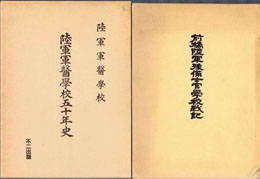 陸軍軍醫學校
陸軍軍醫學校五十年史
不二出版
前橋陸軍豫備士官學校戰記